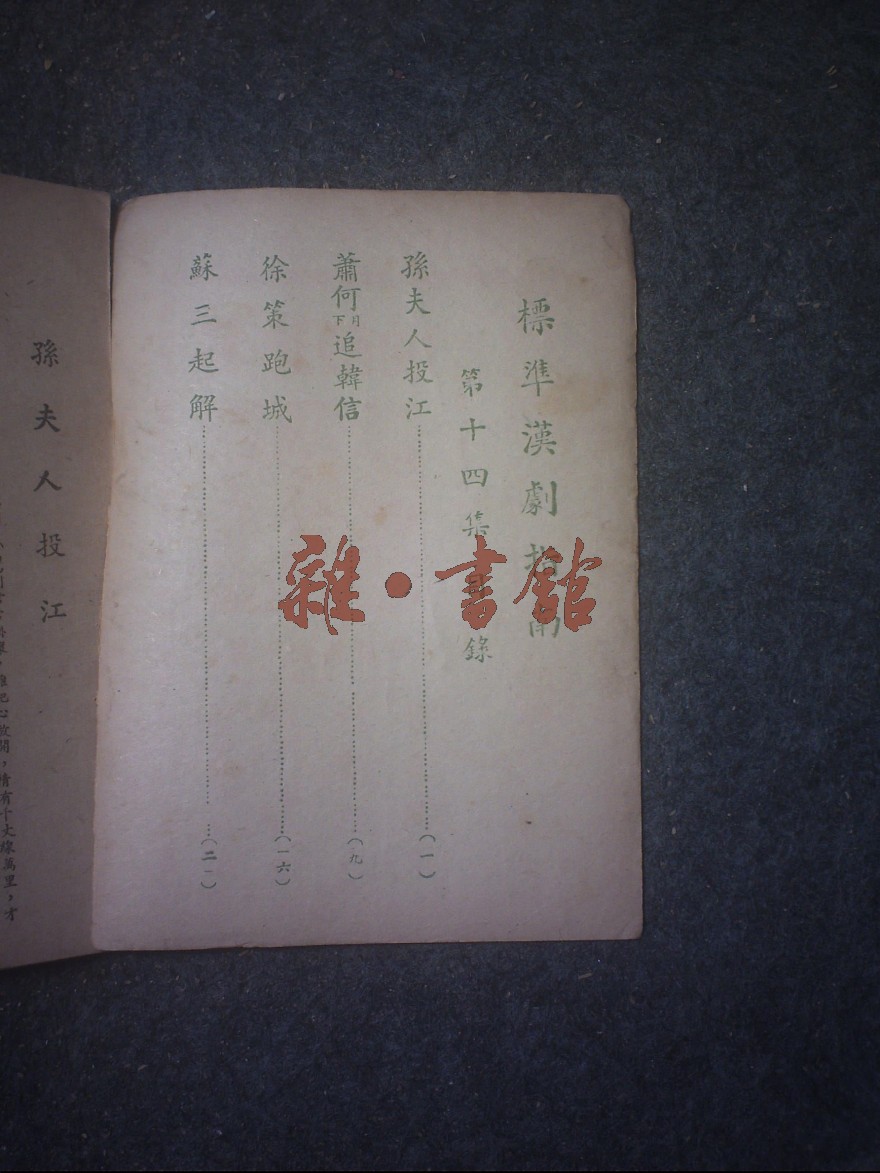 標準漢劇指南
第十四集目錄
孫夫人投江……(一)
蕭何月下追韓信……(九)
徐策跑城……(一六)
蘇三起解……(二一)
雜·書館
孫夫人投江